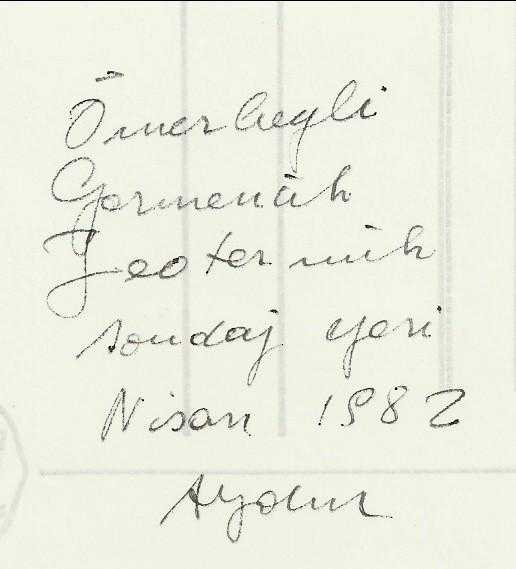 Ömerbeyli
Germencik
Jeotermik
sondaj yeri
Nisan 1982
Aydın